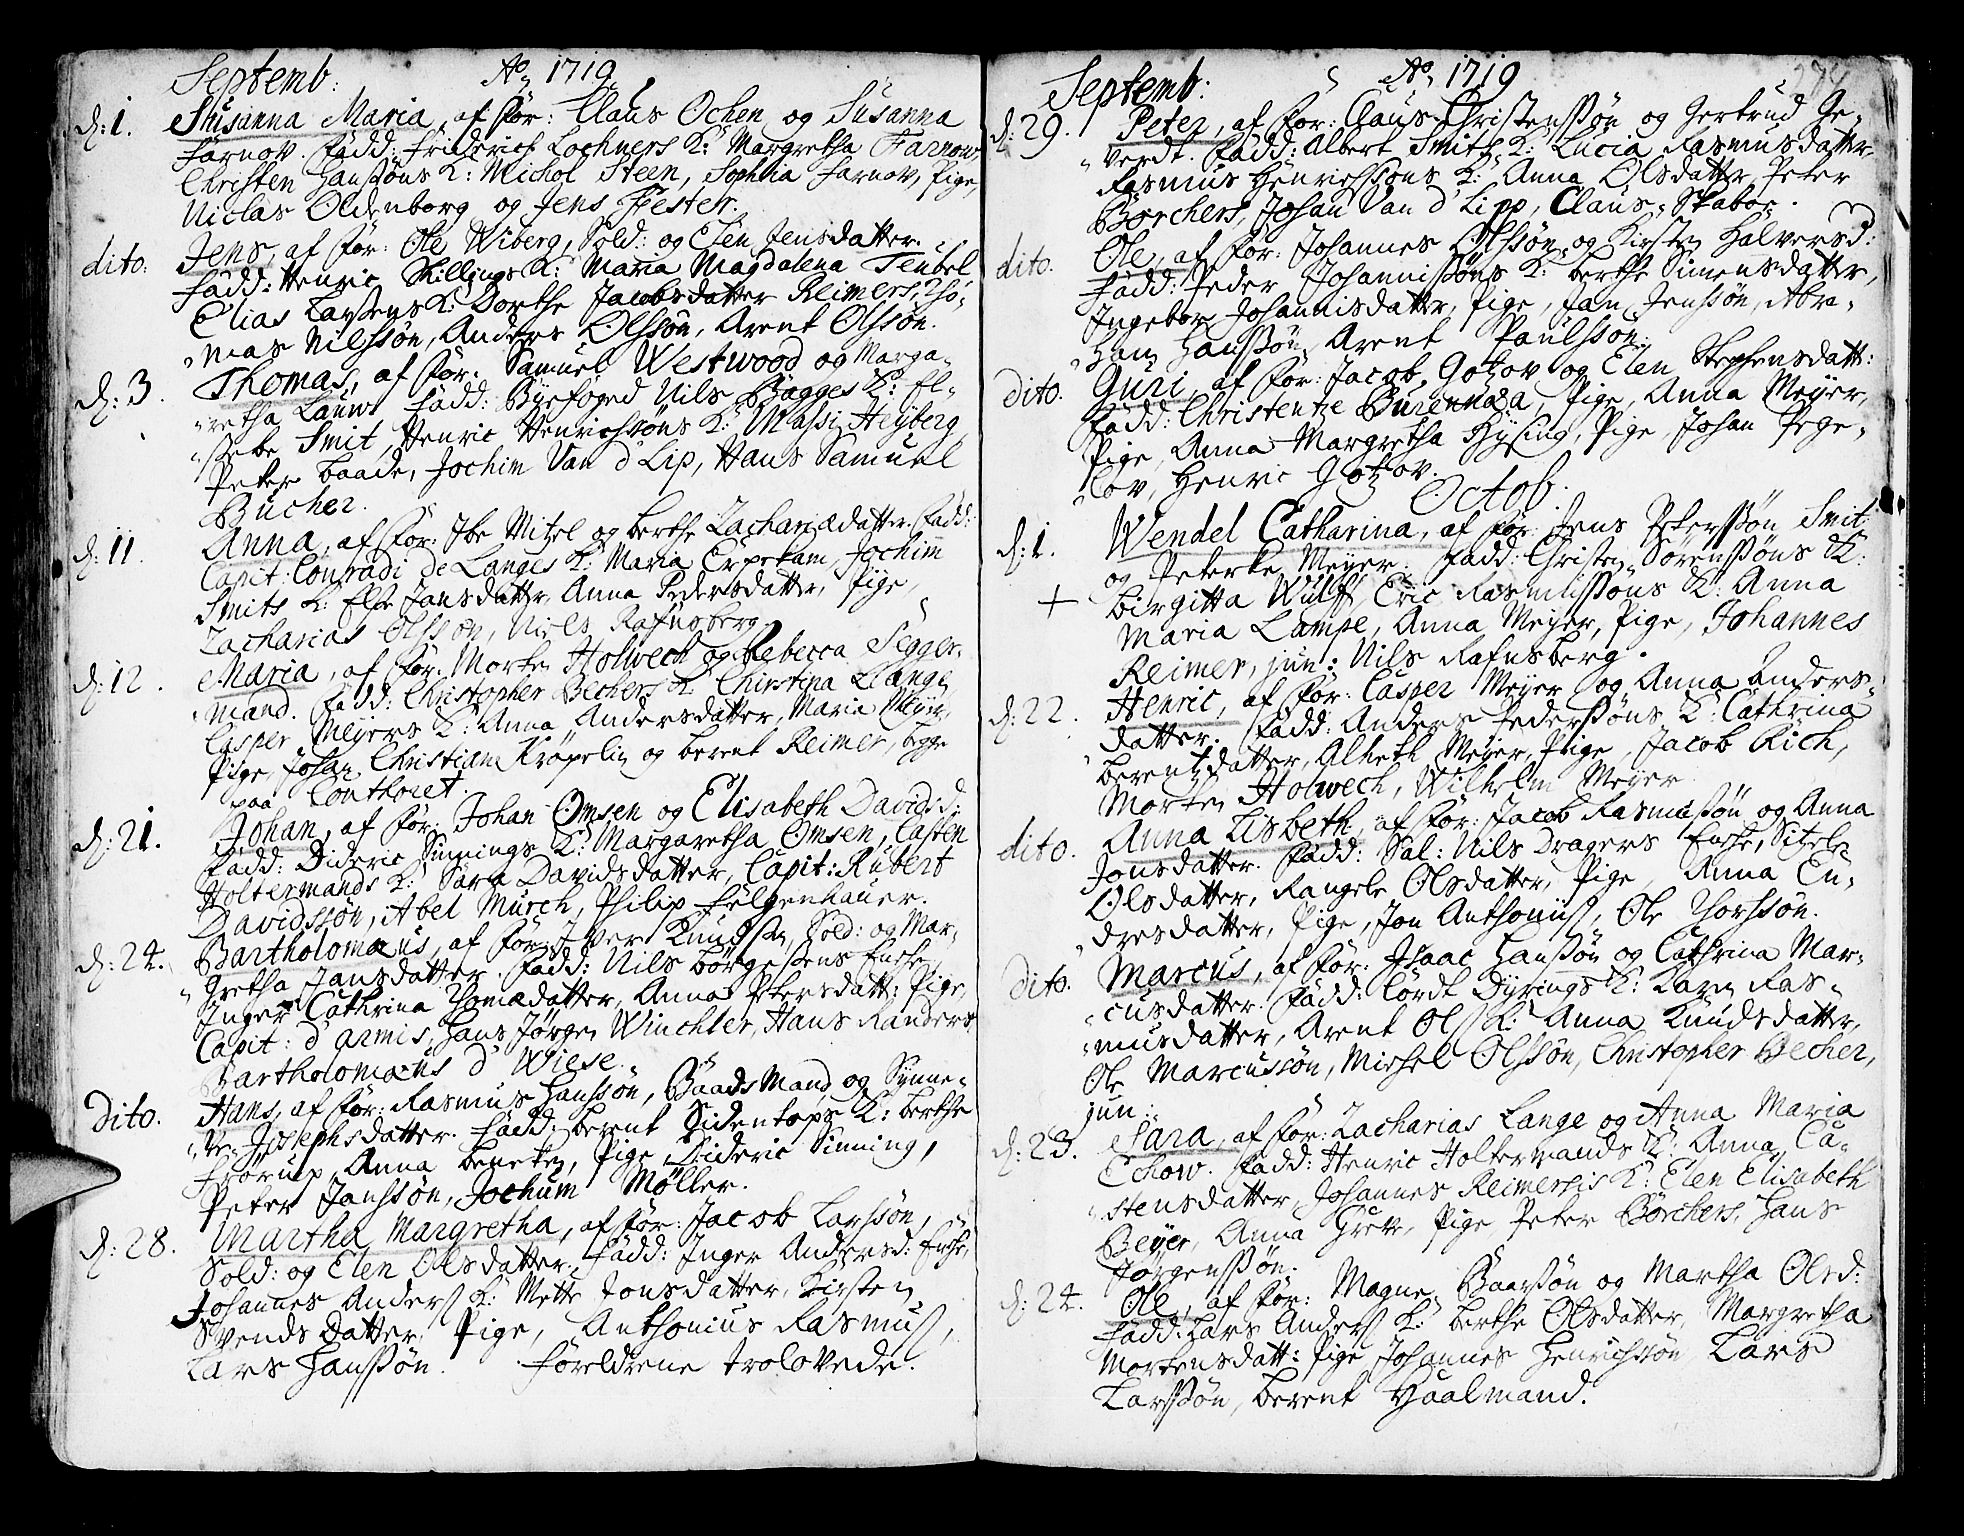 Septemb: Aο 1719
d: 1. Susanna Maria, af For: Claus Ochen og Susanna
Farnov. Fadd: Friderich Lochners K: Margretha Farnow,
Christen Hanssöns K: Michol Steen, Sophia Farnov, Pige,
Niclas Oldenborg og Jens Fester.
dito: Jens, af For: Ole Wiberg, Sold: og Elen Jensdatter.
Fadd: Henric Skillings K: Maria Magdalena Teubel
Elias Larsens K: Dorthe Jacobsdatter Reimers, Tho-
mas Nilssön, Anders Olssön, Arent Olssön.
d: 3. Thomas, af For: Samuel Westwood og Marga-
retha Lauw Fadd: Byefoged Nils Bagges K: El-
sebe Smit, Henric Henrichssöns K: Massi Heyberg
Peter Baade, Jochim Van d Lip, Hans Samuel
Bücher.
d: 11. Anna, af For: Ibe Mitzel og Berthe Zachariædatter. Fadd:
Capit: Conradi de Langes K: Maria Erpekam, Jochim
Smits K: Else Jansdatter, Anna Pedersdatter, Pige,
Zacharias Olsson, Niels Rafnsberg.
d: 12. Maria, af For: Morten Holwech og Rebecca Segger-
mand. Fadd: Christopher Bechers K: Christina Lange
Casper Meyers K: Anna Andersdatter, Maria Meyer,
Pige, Johan Christian Kröpelin og Berent Reimer, begge
paa Contoret.
d: 21. Johan, af For: Johan Omsen og Elisabeth Davidsd:
Fadd: Dideric Sinnings K: Margaretha Omsen, Casten
Holtermands K: Sara Davidsdatter, Capit: Rubert
Davidssön, Abel Murch, Philip Felgenhauer.
d: 24. Bartholomæus, af For: Iver Knudsen, Sold: og Mar-
gretha Jansdatter. Fadd: Nils Börgesens Enche,
Inger Cathrina Thomædatter, Anna Petersdatt: Pige,
Capit: d'armis, Hans Jörgen Winchler, Hans Randers
Bartholomæus d Wiese.
Dito. Hans, af For: Rasmus Hanssön, Baads Mand og Synne-
ve Josephsdatter. Fadd: Berent Sidentops K: Berthe
Frorup, Anna Beneken, Pige, Dideric Sinning,
Peter Janssön, Jochum Møller.
d: 28. Martha Margretha, af For: Jacob Larssön,
Sold: og Elen Olsdatter. Fadd: Inger Andersd: Enche,
Johannes Anders K: Mette Jonsdatter, Kirsten
Svends Datter, Pige, Anthonius Rasmus,
Lars Hanssön. Foreldrene trolovede.
Septemb: Aο 1719 274
d: 29. Peter, af For: Claus Christenssön og Gertrud Ge-
verdt. Fadd: Albert Smiths K: Lucia Rasmusdatter,
Rasmus Henrichssöns K: Anna Olsdatter, Peter
Borchers, Johan Van d Lipp, Claus Skabor.
dito. Ole, af For: Johannes Olssön og Kirsten Halversd:
Fadd: Peder Johannissöns K: Berthe Simensdatter,
Ingebor Johannisdatter, Pige, Jan Jenssön, Abra-
ham Hanssön, Arent Paulsson.
dito. Guri, af For: Jacob Gotzov og Elen Stephensdatt:
Fadd: Christentze Burennæa, Pige, Anna Meyer,
Pige, Anna Margretha Hysing, Pige, Johan Pege-
lov, Henric Gotzov.
Octob:
d: 1. Wendel Catharina, af For: Jens Peterssön Smit
og Peterke Meyer. Fadd: Christen Sörenssöns K:
+ Birgitta Wulff, Eric Rasmussöns K: Anna
Maria Lampe, Anna Meyer, Pige, Johannes
Reimer, jun: Nils Rafnsberg.
d: 22. Henric, af For: Casper Meyer og Anna Anders-
datter. Fadd: Anders Pederssöns K: Cathrina
Berentzdatter, Alheth Meyer, Pige, Jacob Rich,
Morten Holwech, Wilhelm Meyer
dito. Anna Lisbeth, af For: Jacob Rasmussön og Anna
Jonsdatter. Fadd: Sal: Nils Dragers Enche, Sitzele
Olsdatter, Rangele Olsdatter, Pige, Anna En-
dresdatter, Pige, Jon Anthonius, Ole Thorssön.
dito. Marcus, af For: Isaac Hanssön og Cathrina Mar-
cusdatter. Fadd: Cordt Dyrings K: Karn Ras-
musdatter, Arent Ols K: Anna Knudsdatter,
Ole Marcussön, Michel Olssön, Christopher Becher,
jun:
d: 23. Sara, af For: Zacharias Lange og Anna Maria
Echow. Fadd: Henric Holtermands K: Anna Ca-
stensdatter, Johannes Reimersis K: Elen Elisabeth
Beyer, Anna Grev, Pige, Peter Börchers, Hans
Jörgenssön.
d: 24. Ole, af For: Magne Baarssön og Martha Olsd:
Fadd: Lars Anders K: Berthe Olsdatter, Margretha
Mortensdatt: Pige, Johannes Henrichssön, Lars
Larssön, Berent Haalmand.